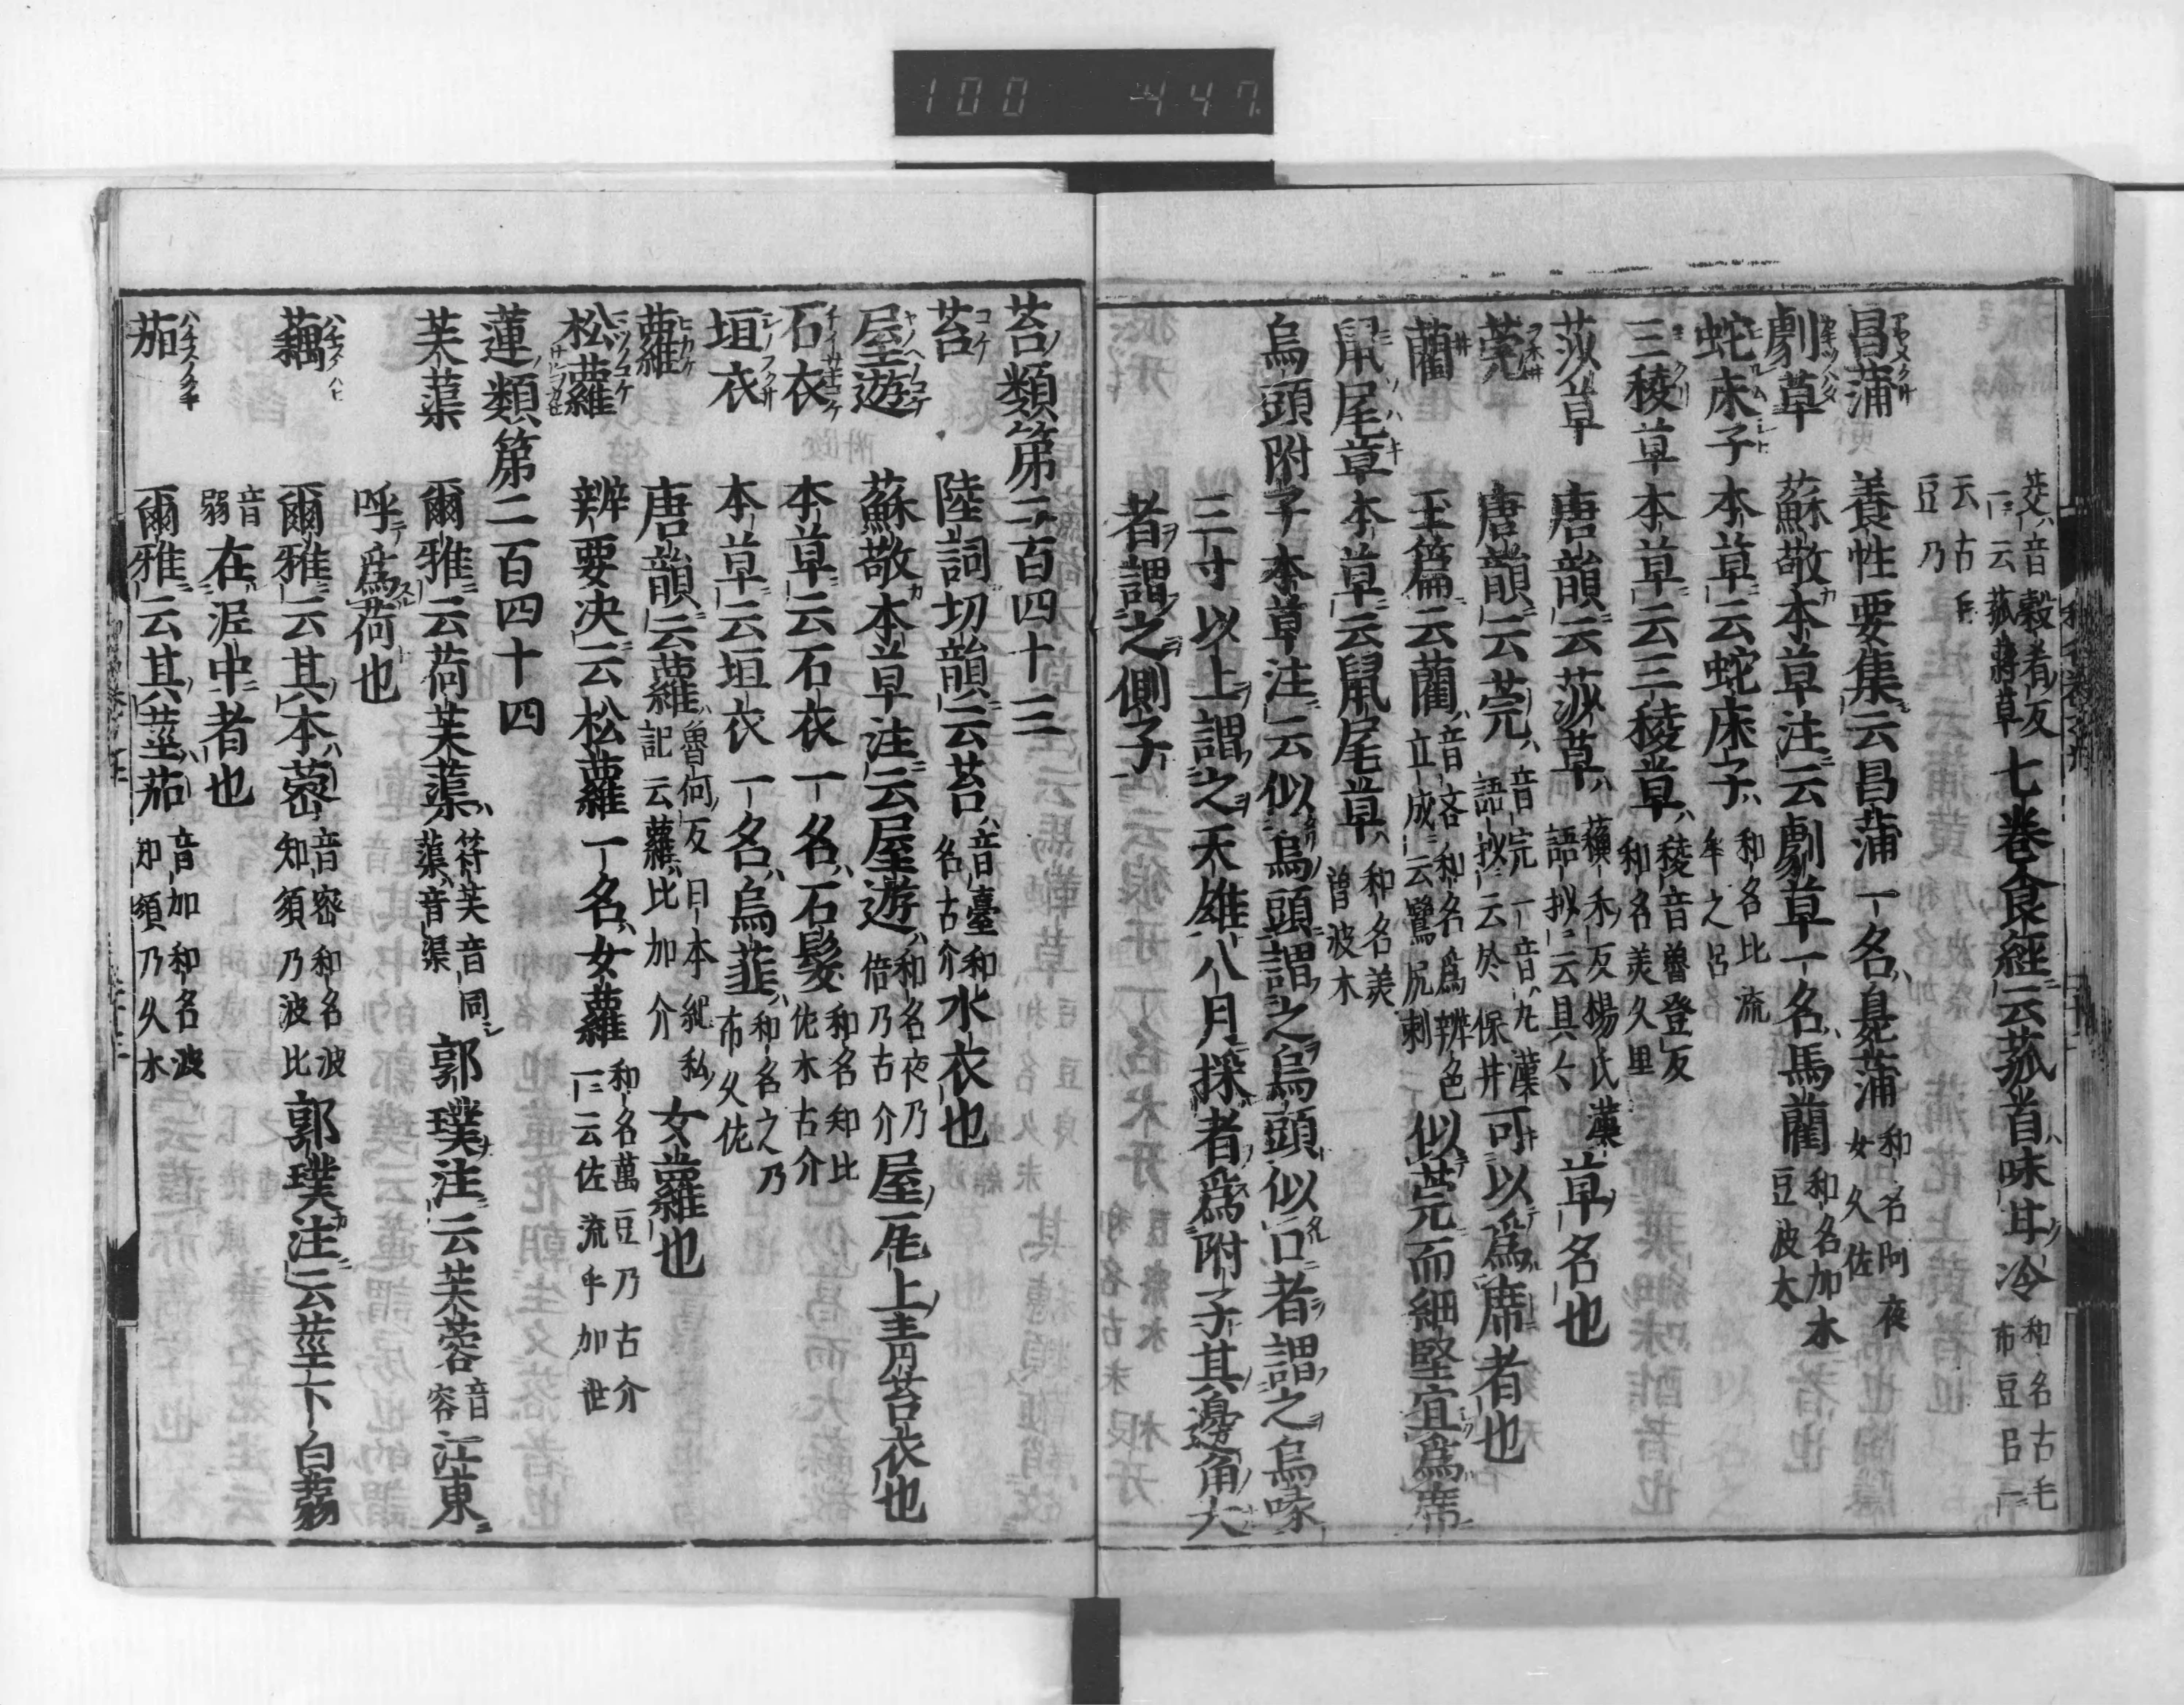 100 447
茭音穀肴反 一云菰蔣草 七卷食經云菰首味甘冷 和名古毛布豆呂一
云古毛豆乃
昌蒲 養性要集云昌蒲一名臭蒲 和名阿夜女久佐
劇草 蘇敬本草注云劇草一名馬藺 和名加木豆波太
蛇床子 本草云蛇床子 和名比流牟之呂
三稜草 本草云三稜草 稜音魯登反 和名美久里
莎草 唐韻云莎草 蘓禾反楊氏漢語抄云具〻 草名也
莞 唐韻云莞 音完一音丸漢語抄云於保井 可以爲席者也
藺 玉篇云藺 音吝和名爲辨色立成云鷺尻刺 似莞而細堅宜爲席
鼠尾草 本草云鼠尾草 和名美曽波木
烏頭附子 本草注云似烏頭謂之烏頭似口者謂之烏喙
三寸以上謂之天雄八月採者爲附子其邊角大
者謂之側子
苔類第二百四十三
苔 陸詞切韻云苔 音臺和名古介 水衣也
屋遊 蘇敬本草注云屋遊 和名夜乃倍乃古介 屋瓦上青苔衣也
石衣 本草云石衣一名石髮 和名知比佐木古介
垣衣 本草云垣衣一名烏韮 和名之乃布久佐
蘿 唐韻云蘿 魯何反日本紀私記云蘿比加介 女蘿也
松蘿 辨要决云松蘿一名女蘿 和名萬豆乃古介一云佐流乎加世
蓮類第二百四十四
芙蕖 爾雅云荷芙蕖 符芙音同蕖音渠 郭璞注云芙蓉 音容 江東
呼爲荷也
藕 爾雅云其本蔤 音密和名波知須乃波比 郭璞注云莖下白蒻
音弱 在泥中者也
茄 爾雅云其莖茄 音加和名波知須乃久木